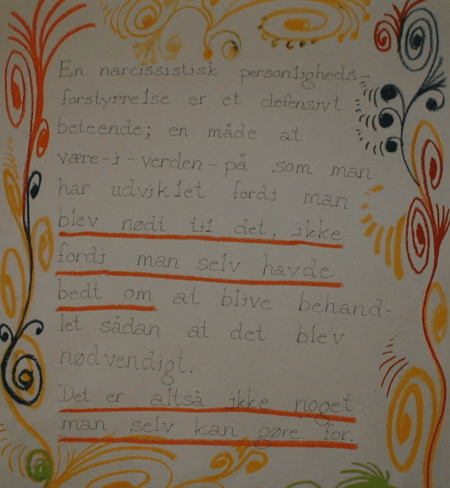 En narcissistisk personligheds-
forstyrrelse er et defensivt
beteende; en måde at
være-i-verden-på som man
har udviklet fordi man
blev nødt til det, ikke
fordi man selv havde
bedt om at blive behand-
let sådan at det blev
nødvendigt.
Det er altså ikke noget
man selv kan gøre for.